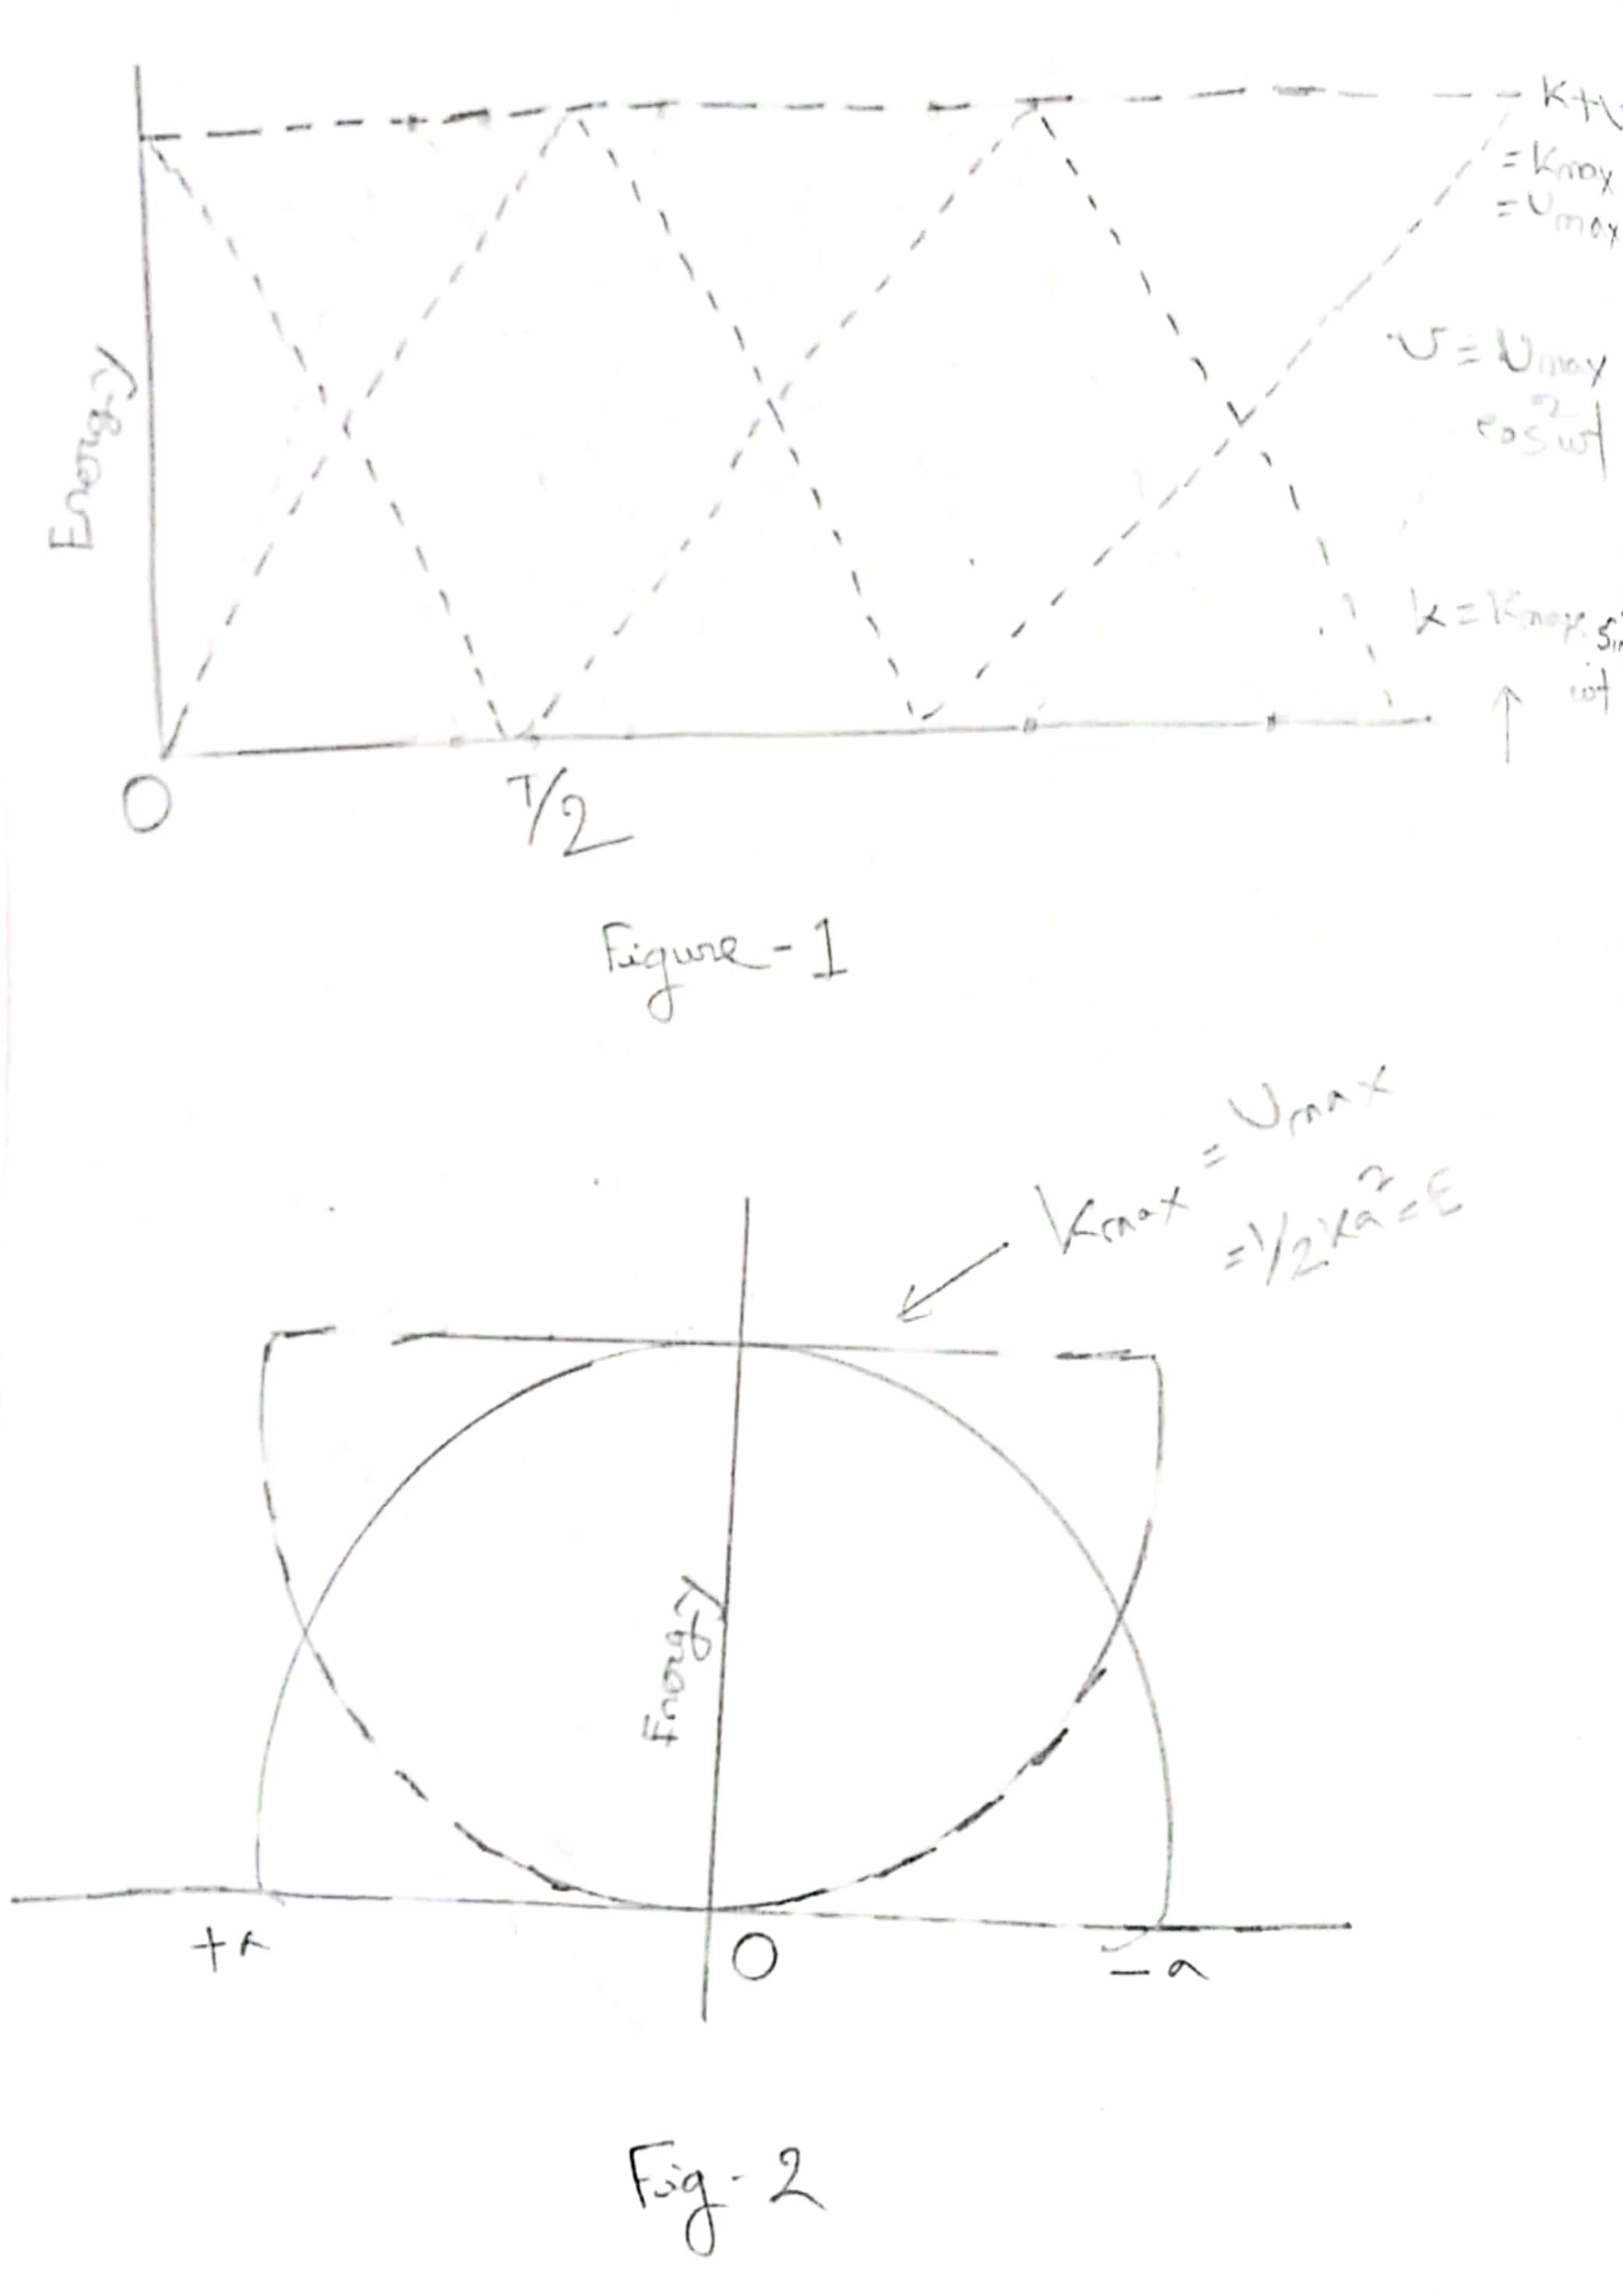 K+U
= Kmax
= Umax
Energy
U = Umax
cos²ωt
k = Kmax. Sin
ωt
O
T/2
Figure-1
Kmax = Umax
= 1/2 Ka² = E
Energy
+a
O
-a
Fig-2